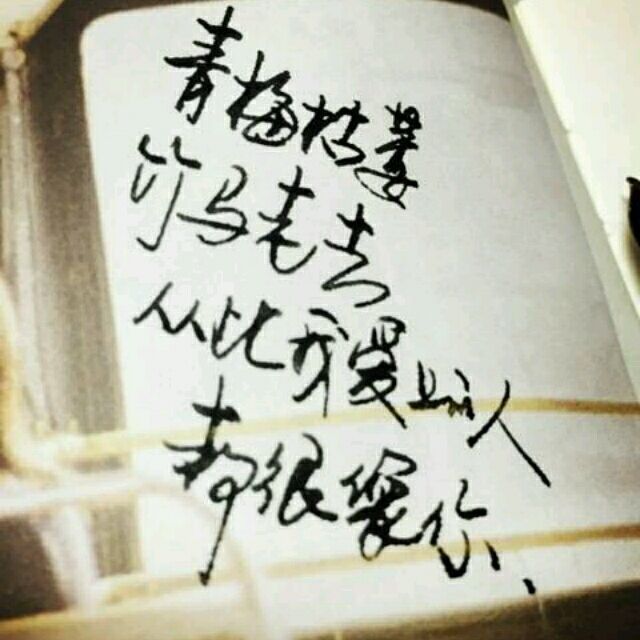 青梅枯萎
竹马老去
从此我爱上的人
都很像你.